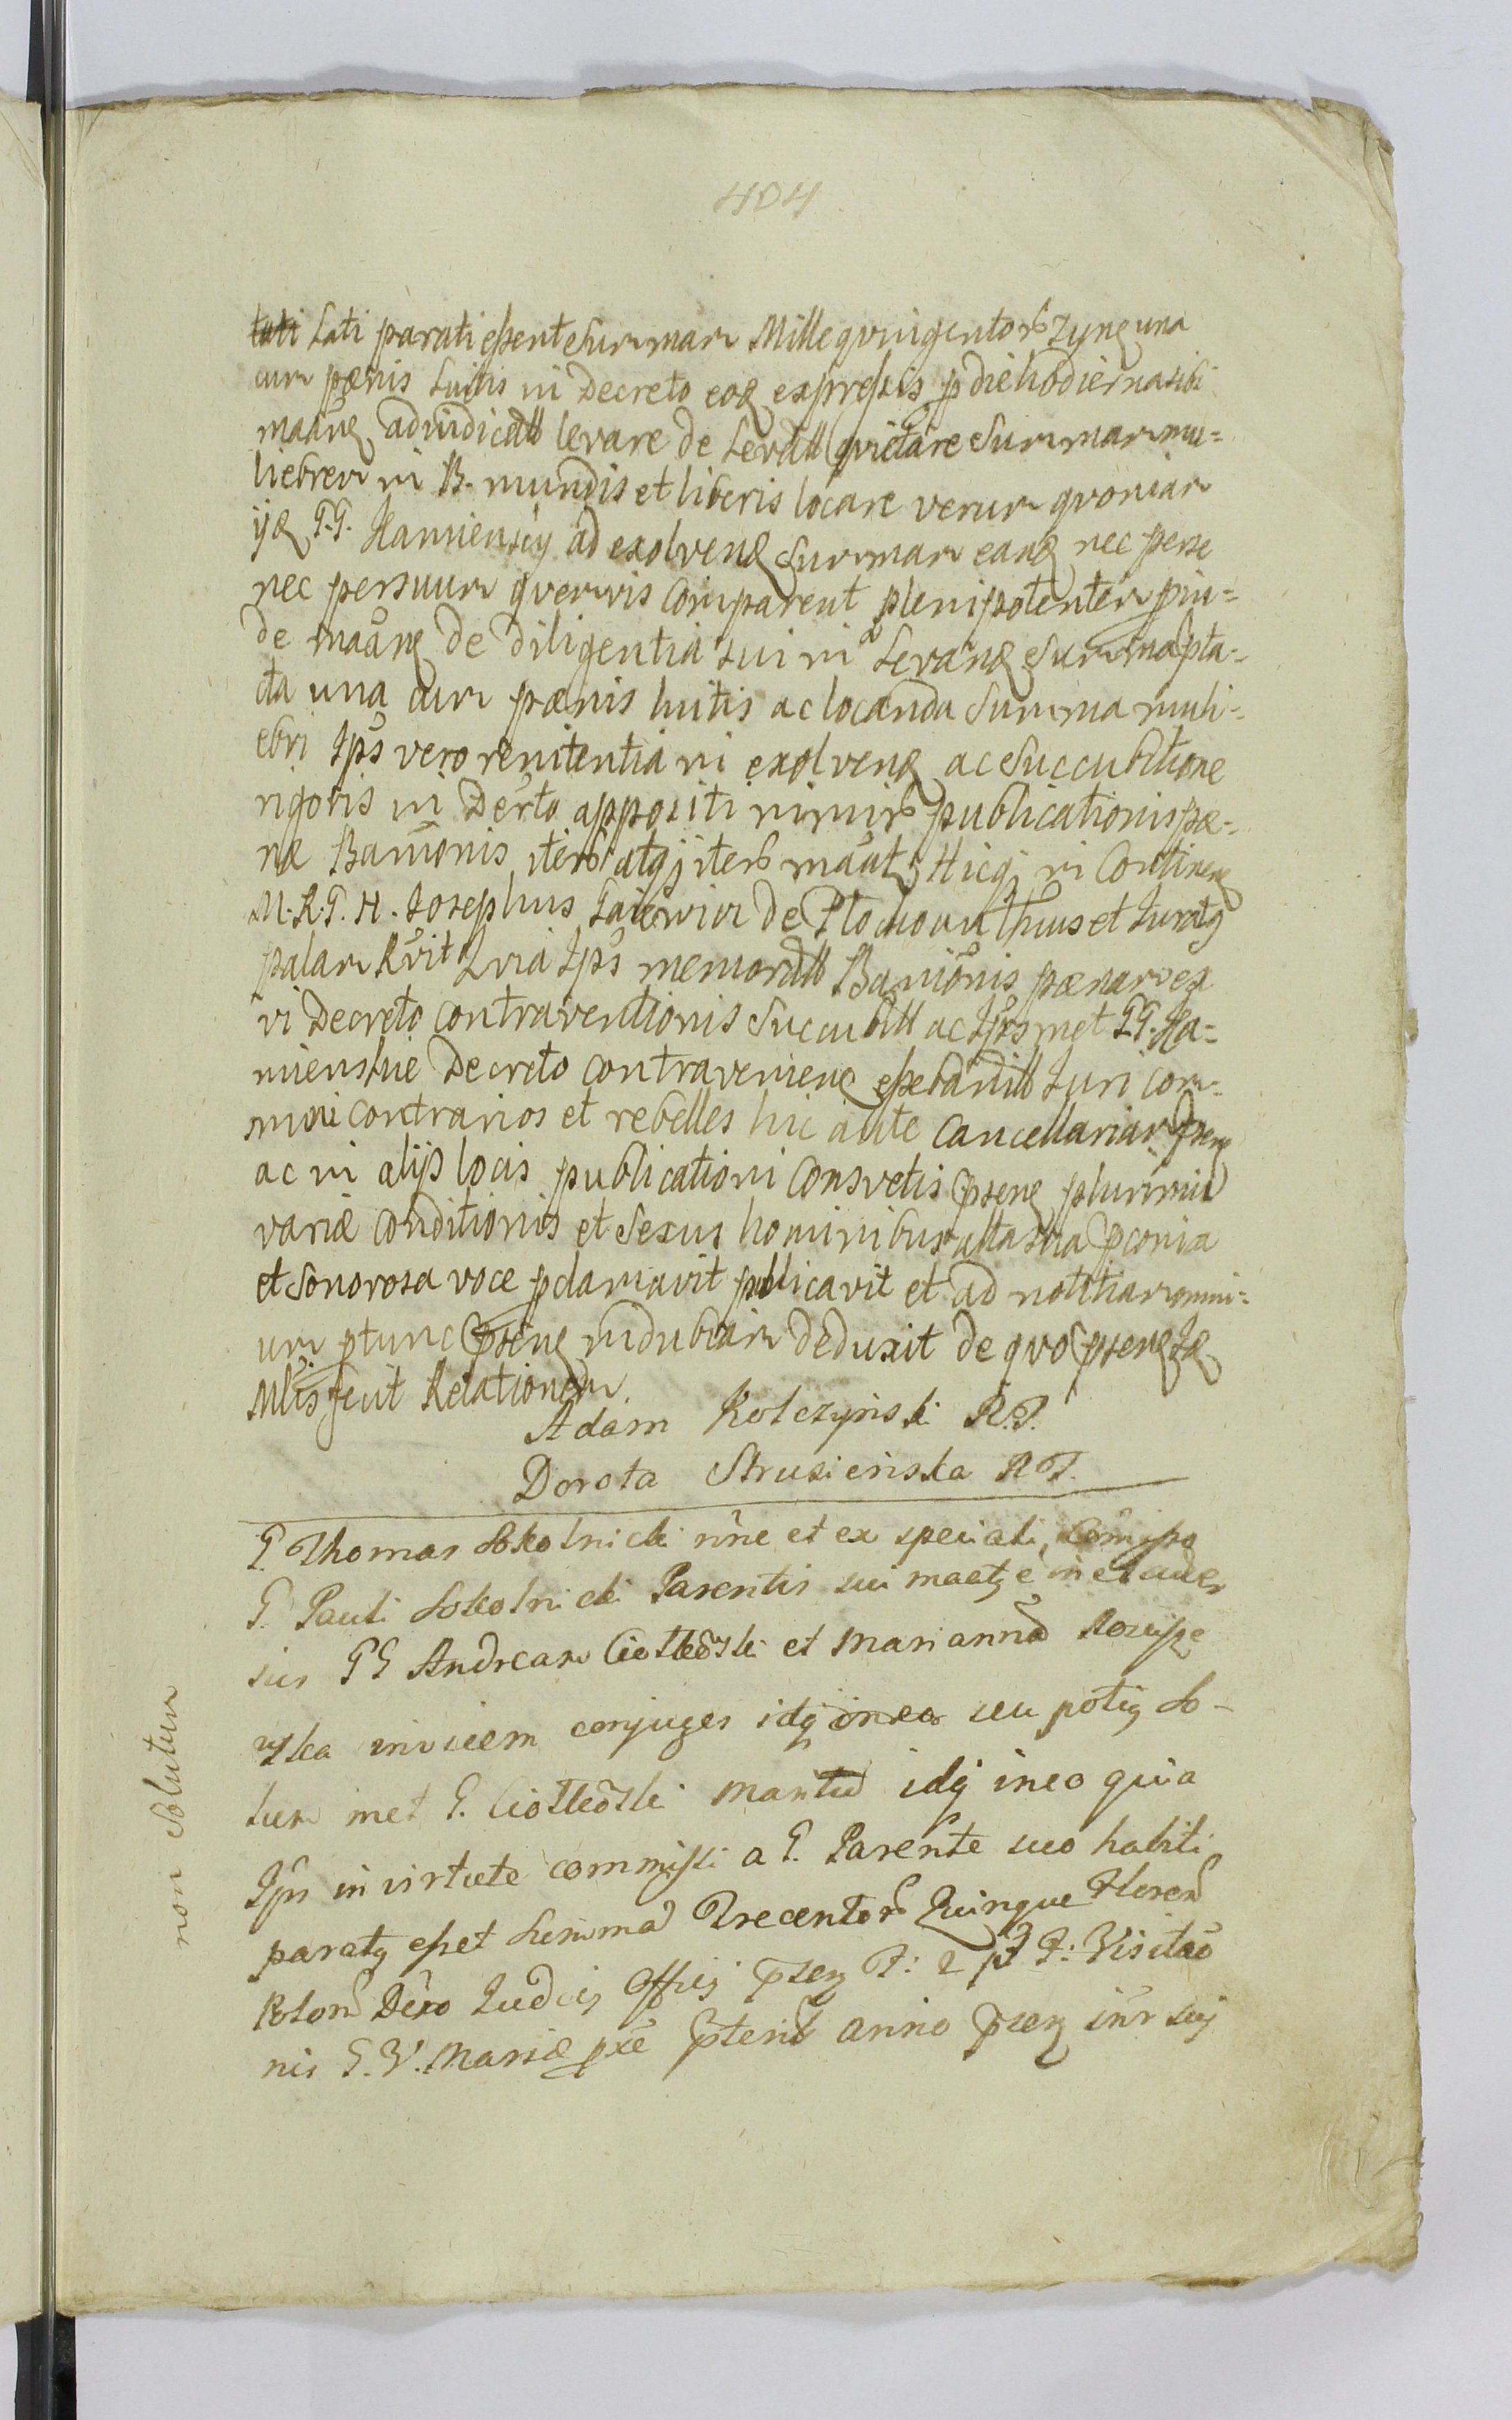 404
Lati parati essent Summam Mille qvingentor Zyne una
cum pœnis luitis in Decreto eoq expressis p die hodierna sibi
maane adiudicatt levare de levatt qvietare Summam mu=
liebrem in B. mundis et liberis locare verum qvoniam
ijq G.G. Kamienscy ad exolvene Summam eane nec perse
nec persuum qvemvis comparent plenipotentem pin=
de maane de diligentia sui in Levane Summa pta=
cta una cum pœnis luitis ac locanda Summa muli=
ebri Ips vero renitentia in exolvene ac Succubitione
rigoris in Derto appositi nimir publicationis pœ=
næ Banionis iter atqj iter maat Hicqj in Continen
M.R.G.H. Josephus de thius et Juratq
palam Rvit Qvia Ips memoratt Banionis pœnam ex
vi Decreto contraventionis Succubitt ac Ipsmet G.G. Ka=
mienskie Decreto contraveniene esse banitt Juri com=
muni contrarios et rebelles hic ante Cancellariam psene
ac in alijs locis publicationi consvetis psene plurimis
variæ conditionis et Sexus hominibus alta sua pconia
et Sonorosa voce pclamavit publicavit et ad notitiam omni=
um ptunc psene indubiam deduxit de qvo psene Læ
Mlis fecit Relationem.
Adam Kolczynski R.P.
Dorota Strusieńska RP.
G. Thomas Sokolnicki nne et ex speciali Commisso
G. Pauli Sokolnicki Parentis sui maatq e in et adver
sus GG Andream Ciołkoski et Marianna
ska invicem conjuges idq in eo seu potiq So-
lum met G. Ciołkoski Maritu idq in eo quia
Ips in virtute commissi a G. Parente suo habiti
paratq esset Summa Trecentor Quinque Floren
Polon Dcro Judicij Officij psen F: 2 F: Visitao
nis B.V. Mariæ pxe pterit anno psen inr suij
non Solutum